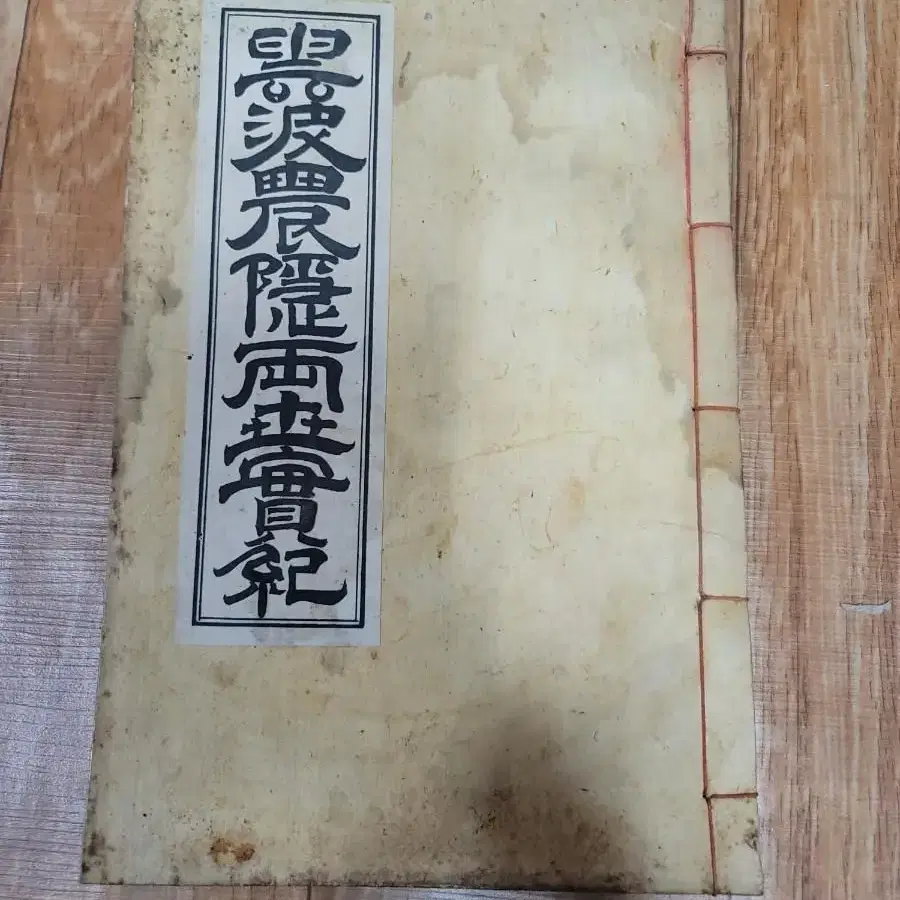 波農隱兩世實紀